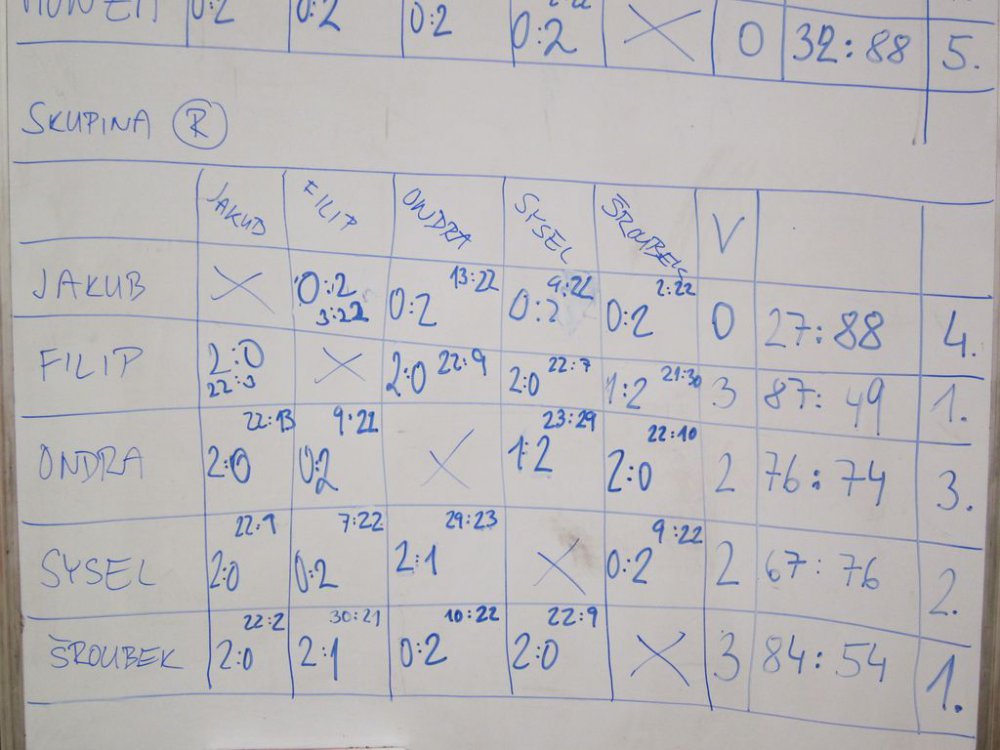 0:2 0:2 0:2 0:2 0 32:88 5.
SKUPINA R
JAKUB FILIP ONDRA SYSEL ŠROUBEK V
JAKUB 0:2 3:22 0:2 13:22 0:2 9:22 0:2 2:22 0 27:88 4.
FILIP 2:0 22:3 2:0 22:9 2:0 22:7 1:2 21:30 3 87:49 1.
ONDRA 2:0 22:13 0:2 9:22 1:2 23:29 2:0 22:10 2 76:74 3.
SYSEL 2:0 22:9 0:2 7:22 2:1 29:23 0:2 9:22 2 67:76 2.
ŠROUBEK 2:0 22:2 2:1 30:21 0:2 10:22 2:0 22:9 3 84:54 1.